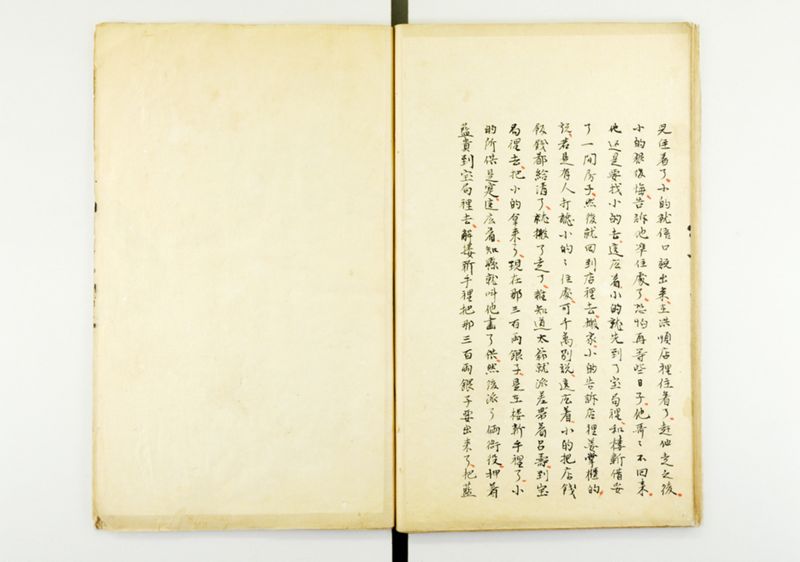 兒住着了、小的就信口說出來、在洪順店裡住着了、趕他走之後
小的很後悔告訴他準住處了、恐怕再等些日子、他哥哥不回來、
他還是要找小的去、這庅着小的就先到了宝局裡、和樓新借妥
了一間房子、然後就回到店裡去搬家、小的告訴店裡姜掌櫃的
說、若是有人打聽小的的住處、可千萬別說、這庅着、小的把店錢
飯錢都給清了、就搬了走了、誰知道太爺就派差帶着呂壽到宝
局裡去、把小的拿来了、現在那三百兩銀子、是在楼新手裡了、小
的所供是寔、這庅着、知縣就叫他畫了供、然後派了倆衙役、押着
藍貴到宝局裡去、解婁新手裡把那三百兩銀子要出来了、把藍